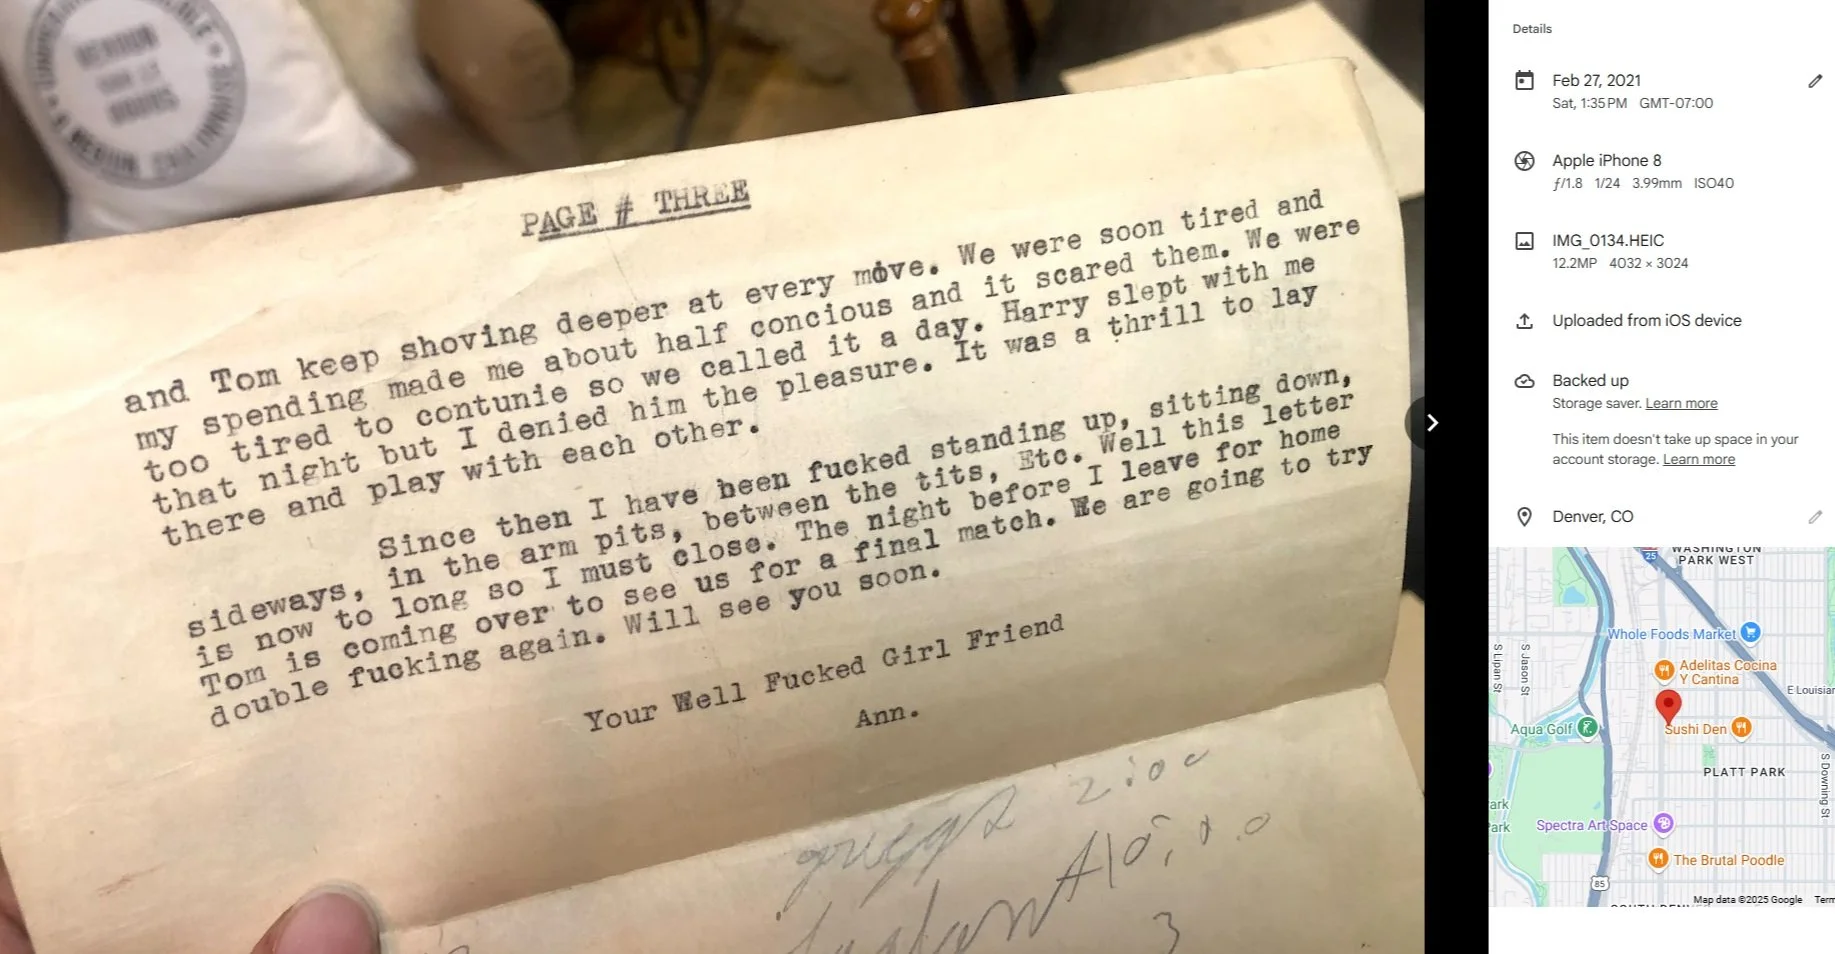 PAGE # THREE
and Tom keep shoving deeper at every move. We were soon tired and
my spending made me about half concious and it scared them. We were
too tired to contunie so we called it a day. Harry slept with me
that night but I denied him the pleasure. It was a thrill to lay
there and play with each other.
Since then I have been fucked standing up, sitting down,
sideways, in the arm pits, between the tits, Etc. Well this letter
is now to long so I must close. The night before I leave for home
Tom is coming over to see us for a final match. We are going to try
double fucking again. Will see you soon.
Your Well Fucked Girl Friend
Ann.
2:00
3
Details
Feb 27, 2021
Sat, 1:35 PM GMT-07:00
Apple iPhone 8
ƒ/1.8 1/24 3.99mm ISO40
IMG_0134.HEIC
12.2MP 4032 × 3024
Uploaded from iOS device
Backed up
Storage saver. Learn more
This item doesn't take up space in your
account storage. Learn more
Denver, CO
25
WASHINGTON
PARK WEST
Whole Foods Market
S Lipan St
S Jason St
Adelitas Cocina
Y Cantina
E Louisiar
Aqua Golf
Sushi Den
PLATT PARK
S Downing St
ark
Park
Spectra Art Space
The Brutal Poodle
85
Map data ©2025 Google
Term